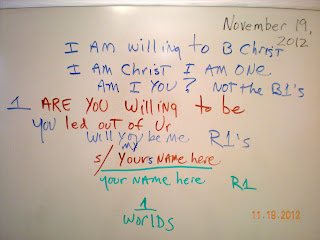 November 19,
2012
I AM willing to B Christ
I AM Christ I AM ONE
Am I You? Not the B1's
1 ARE YOU Willing to be
you led out of Ur
will you be me R1's
my
s/ Yours NAME here
your NAME here R1
1
WORLDS
11.18.2012